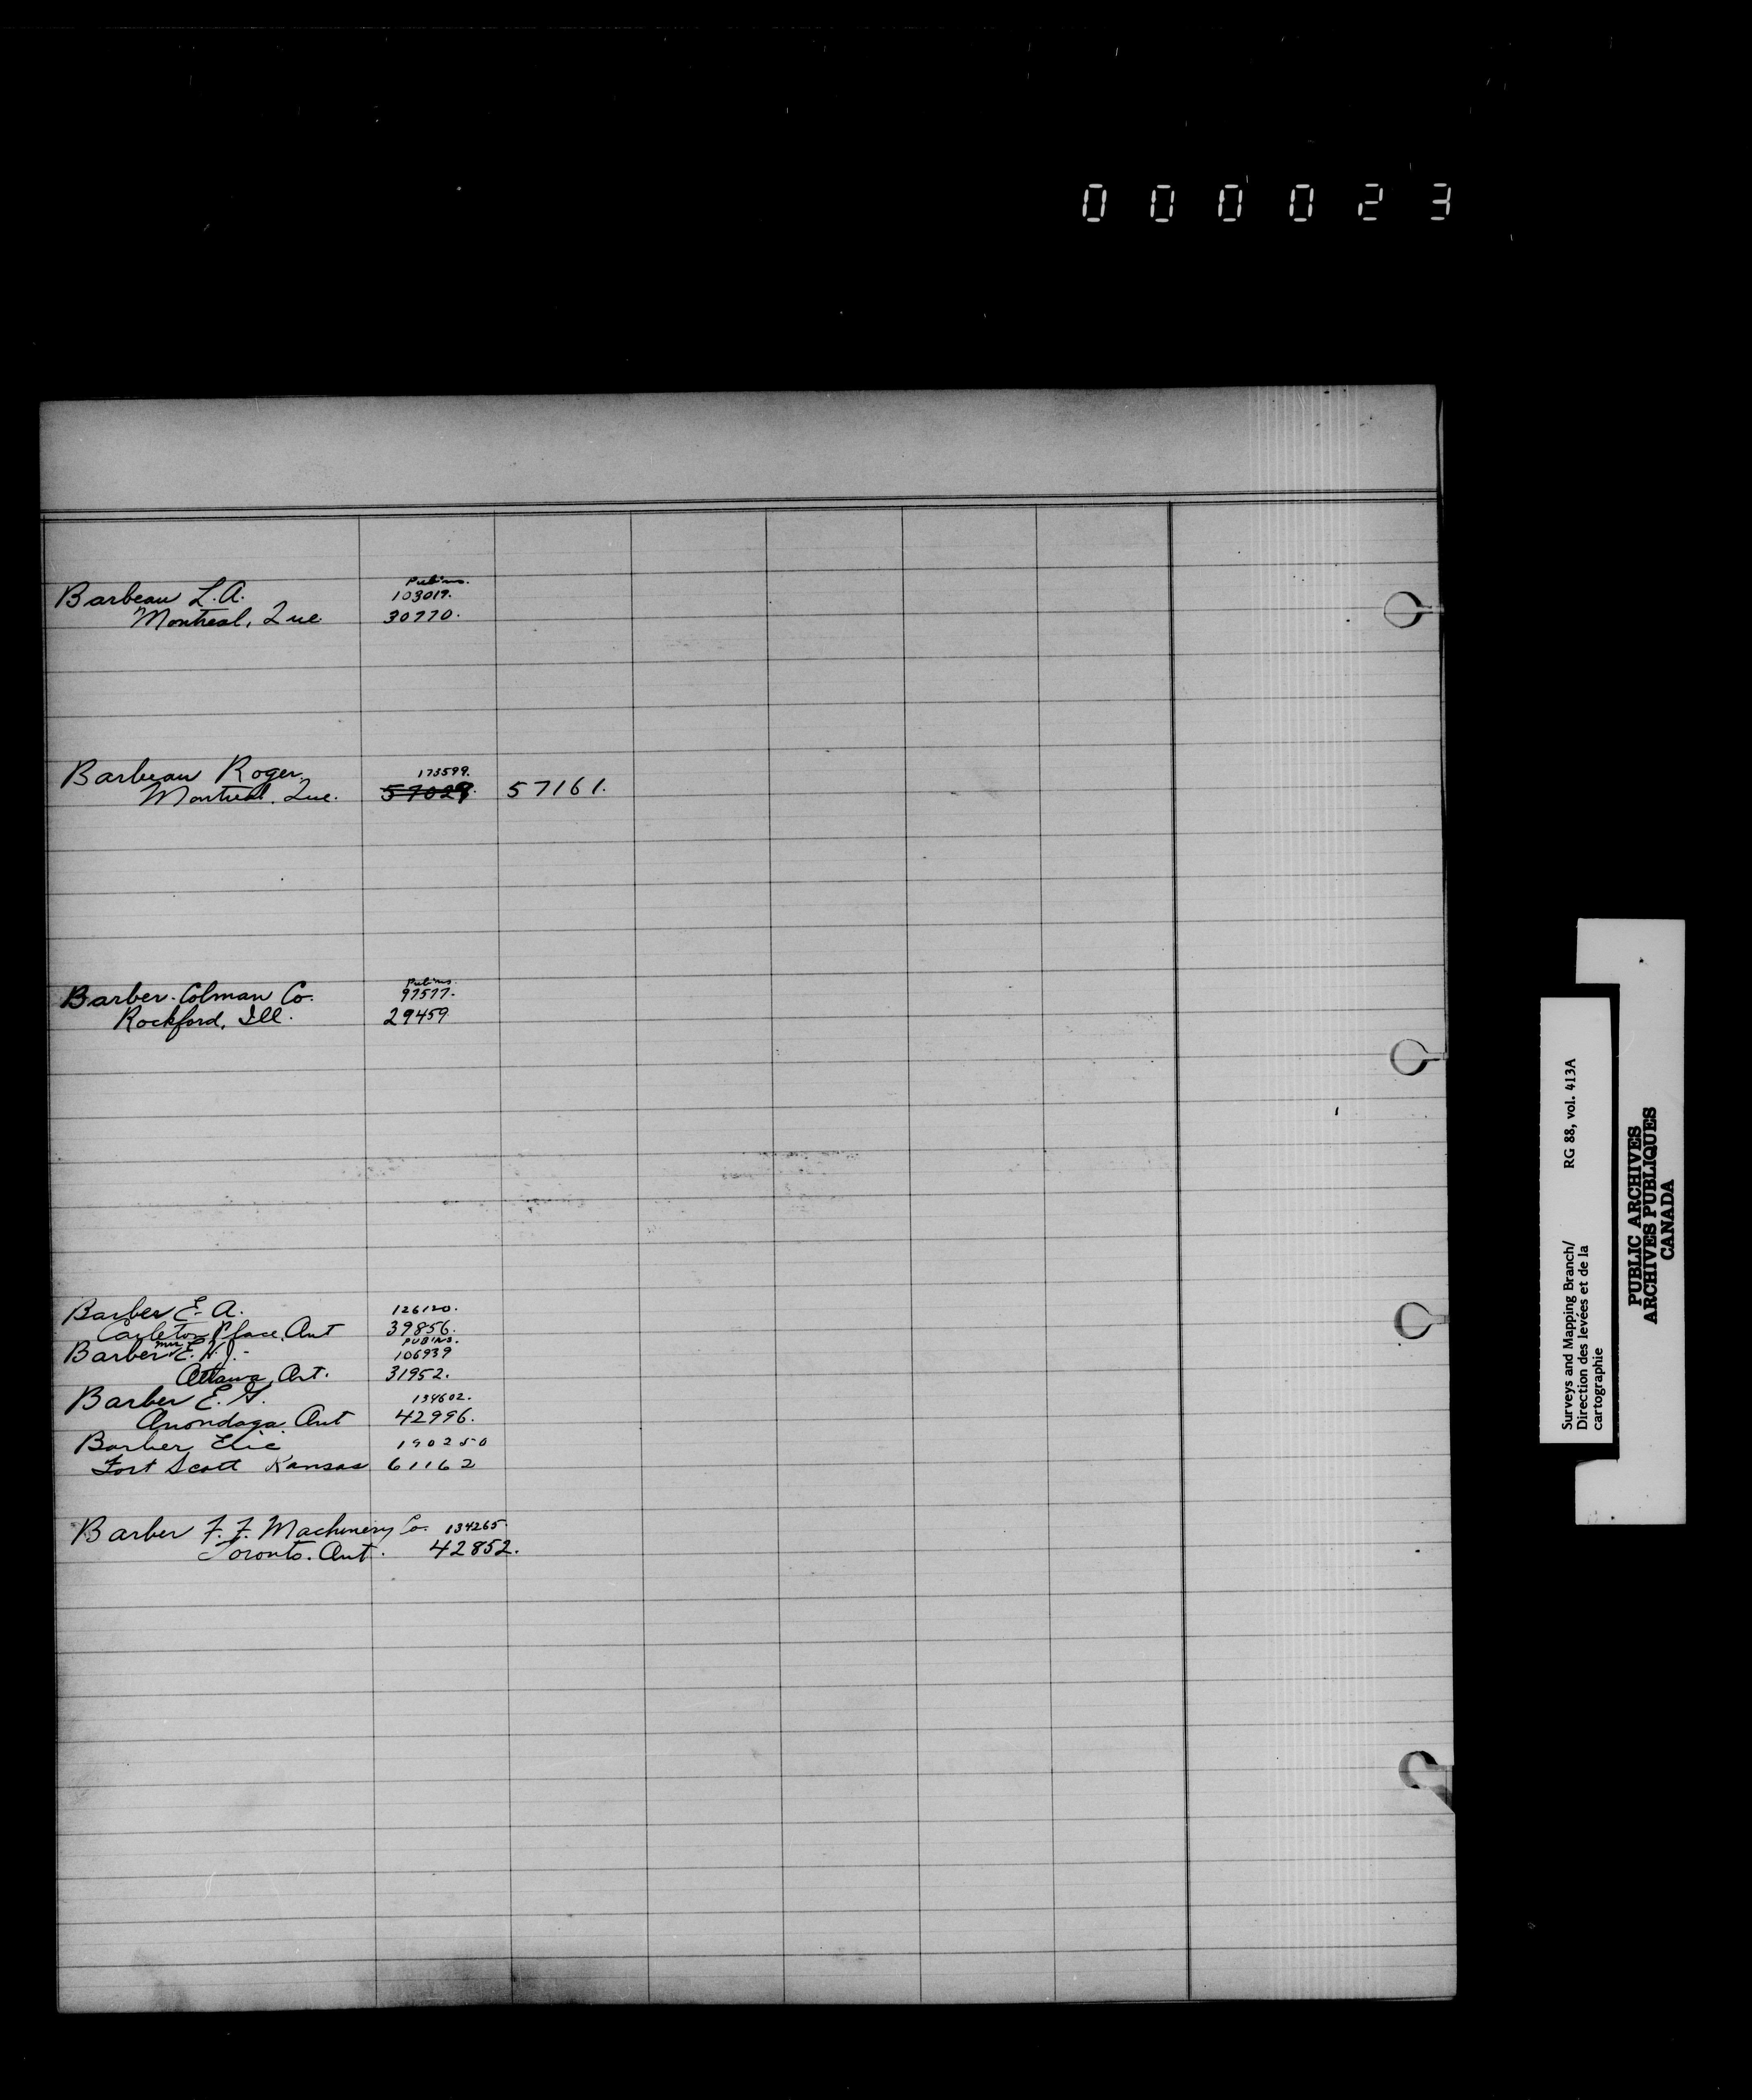 000023
Barbeau L.A. Pub'ns. 103019.
Montreal, Que. 30770.
Barbeau Roger. 173599.
Montreal, Que. 57029. 57161.
Barber-Colman Co. Pub'ns. 97577.
Rockford, Ill. 29459
Barber E. A. 126120.
Carleton Place, Ont 39856.
Barber Mrs E. W. J. Pub'ns. 106939
Ottawa, Ont. 31952.
Barber E. G. 134602.
Onondaga, Ont 42996.
Barber Elic 190250
Fort Scott Kansas 61162
Barber F. F. Machinery Co. 134265.
Toronto. Ont. 42852.
Surveys and Mapping Branch/ RG 88, vol. 413A
Direction des levées et de la
cartographie
PUBLIC ARCHIVES
ARCHIVES PUBLIQUES
CANADA